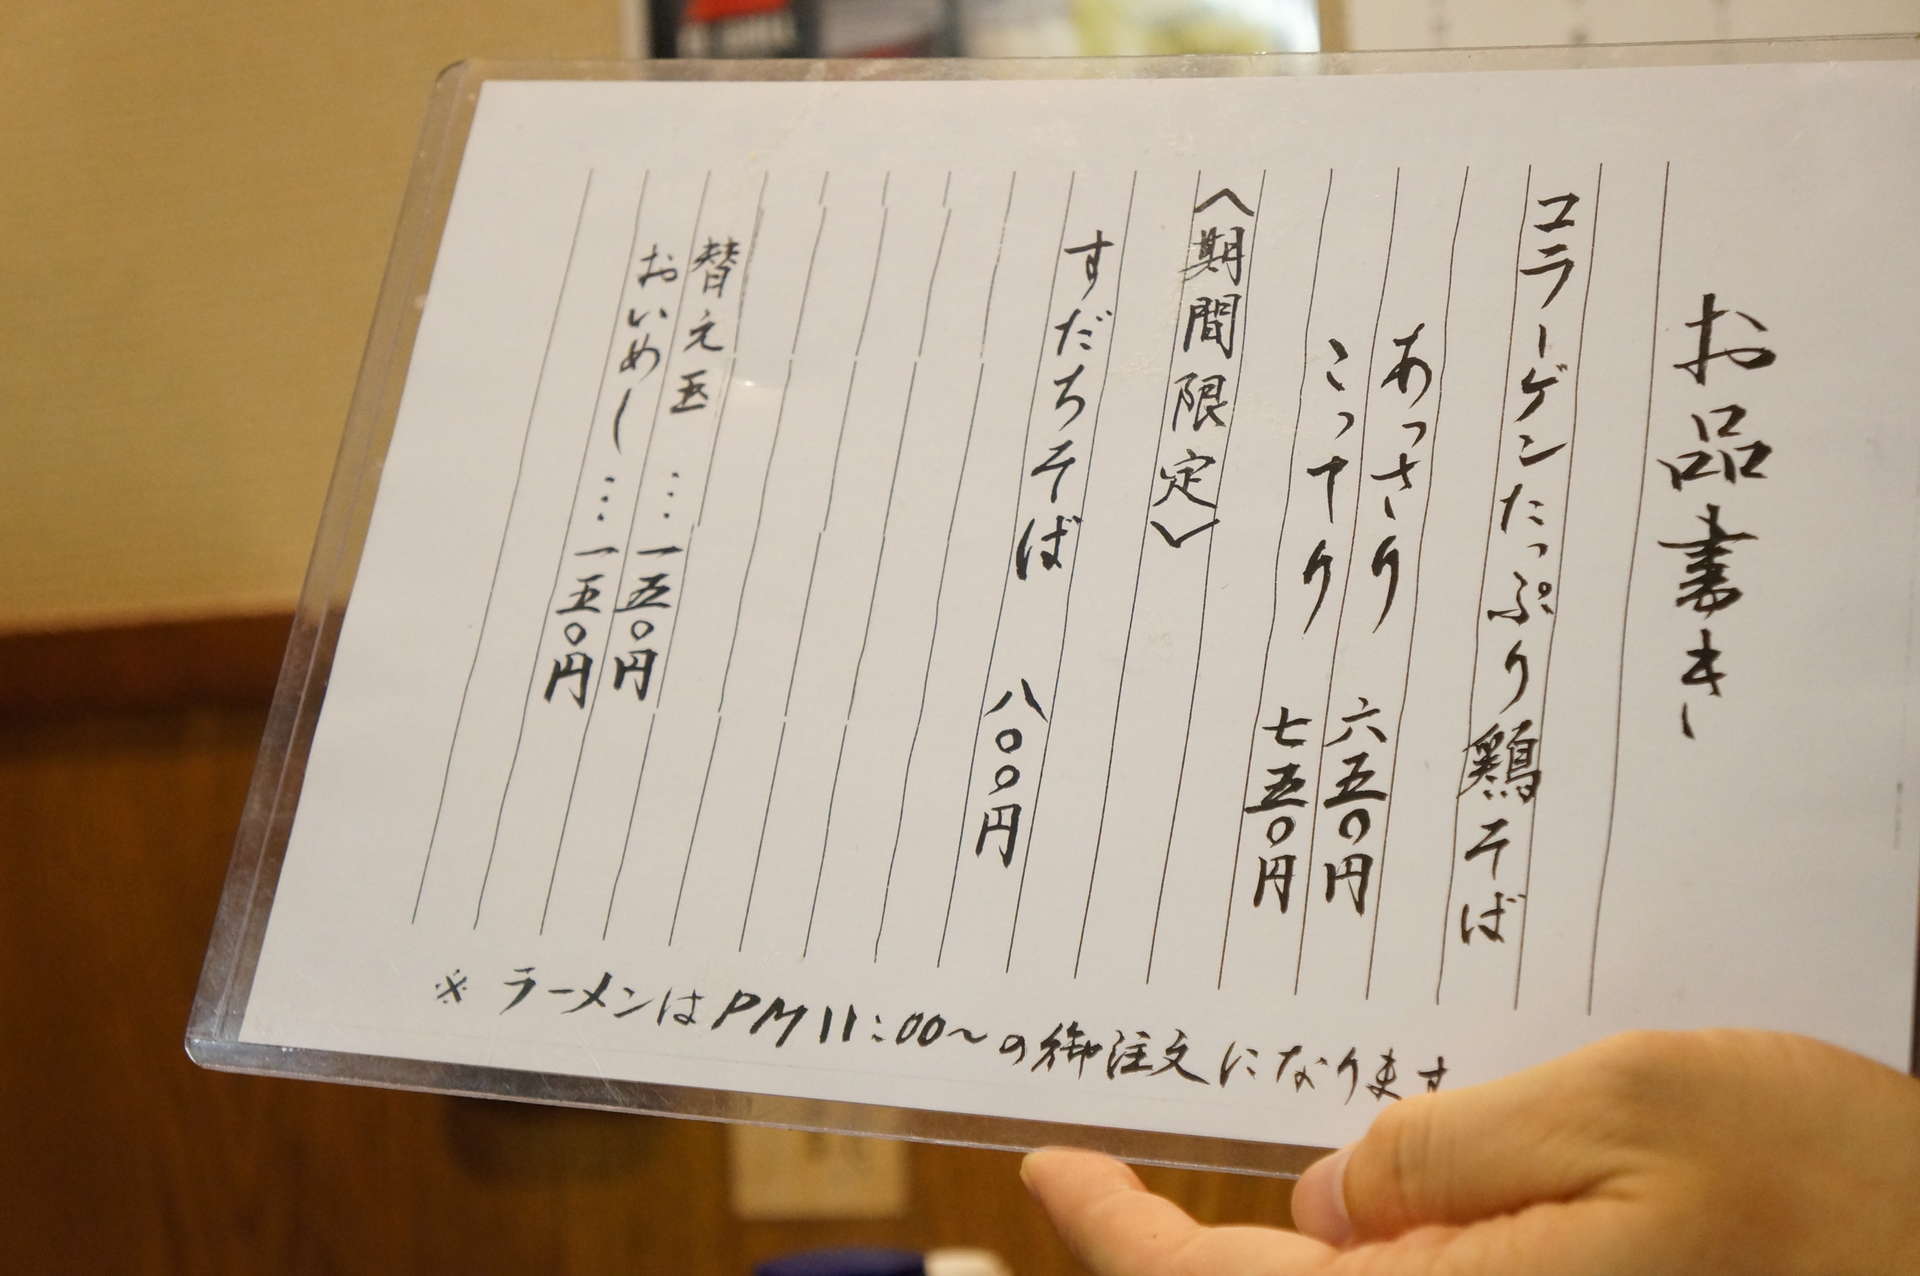 お品書き
コラーゲンたっぷり鶏そば
あっさり 六五〇円
こってり 七五〇円
〈期間限定〉
すだちそば 八〇〇円
替え玉…一五〇円
おいめし…一五〇円
※ ラーメンはPM11:00〜の御注文になります